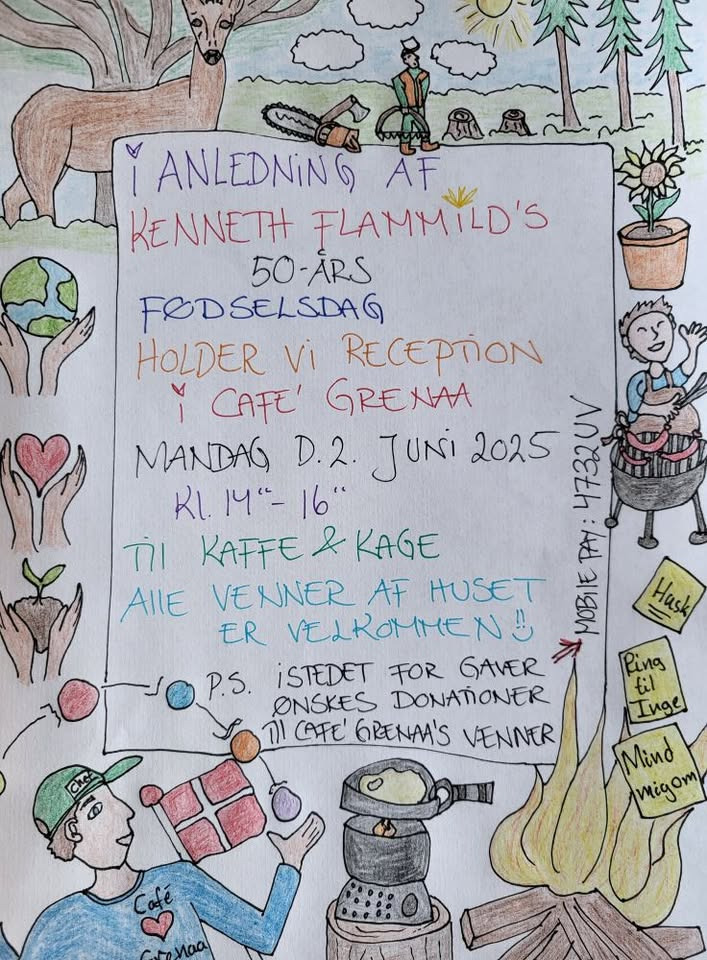 i ANLEDNiNG AF
KENNETH FLAMMiLD'S
50-ÅRS
FØDSELSDAG
HOLDER Vi RECEPTiON
i CAFE' GRENAA
MANDAG D. 2. JUNi 2025
Kl. 14°°- 16°°
Til KAFFE & KAGE
AllE VENNER AF HUSET
ER VELKOMMEN!!
P.S. iSTEDET FOR GAVER
ØNSKES DONATiONER
Til CAFE' GRENAA'S VENNER
MOBilE PAY: 4732UV
Husk
Ring
til
Inge
Mind
mig om
Chef
Café
Grenaa